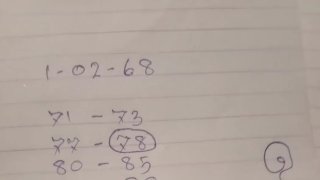 1-02-68
71 - 73
77 - 78
80 - 85